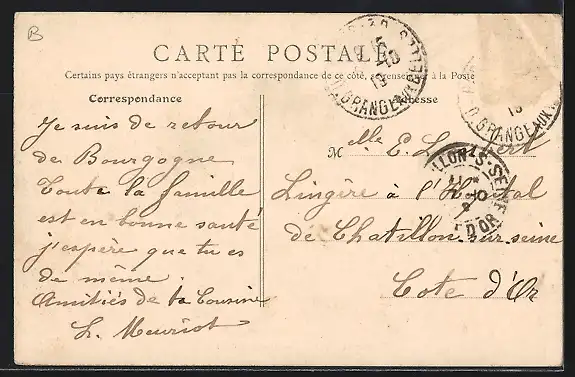 B
CARTE POSTALE
Certains pays étrangers n'acceptent pas la correspondance de ce côté, se renseigner à la Poste
Correspondance
Adresse
Je suis de retour
de Bourgogne
Toute la famille
est en bonne santé
j'espère que tu es
de même.
Amitiés de ta Cousine
L. Meuriot
Melle E. Lambert
Lingère à l'Hopital
de Chatillon sur seine
Cote d'Or
R. GRANGE AUX BELLES
10
R. GRANGE AUX
CHATILLON-S-SEINE
COTE D'OR